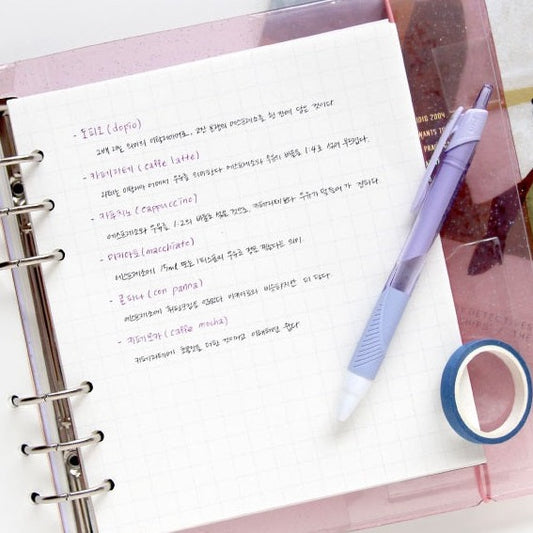 - 도피오 (dopio)
2배, 2잔 의미의 이탈리아어로.. 2잔 분량의 에스프레소를 한 잔에 담은 것이다.
- 카페라떼 (caffe latte)
라떼는 이탈리아어로 우유를 의미한다. 에스프레소와 우유의 비율을 1:4로 섞어 부드럽다.
- 카푸치노 (cappuccino)
에스프레소와 우유를 1:2의 비율로 섞은 것으로, 카페라떼보다 우유가 덜 들어가 진하다.
- 마키아또 (macchiato)
에스프레소에 15ml 우유
- 콘파나 (con panna)
에스프레소에 휘핑크림을 비슷하지만 더 달다.
- 카페모카 (caffe mocha)
카페라떼에 초콜릿을 더한 것이라고 이해하면 쉽다
2004
WANTS TO
DETECTIVES
THE